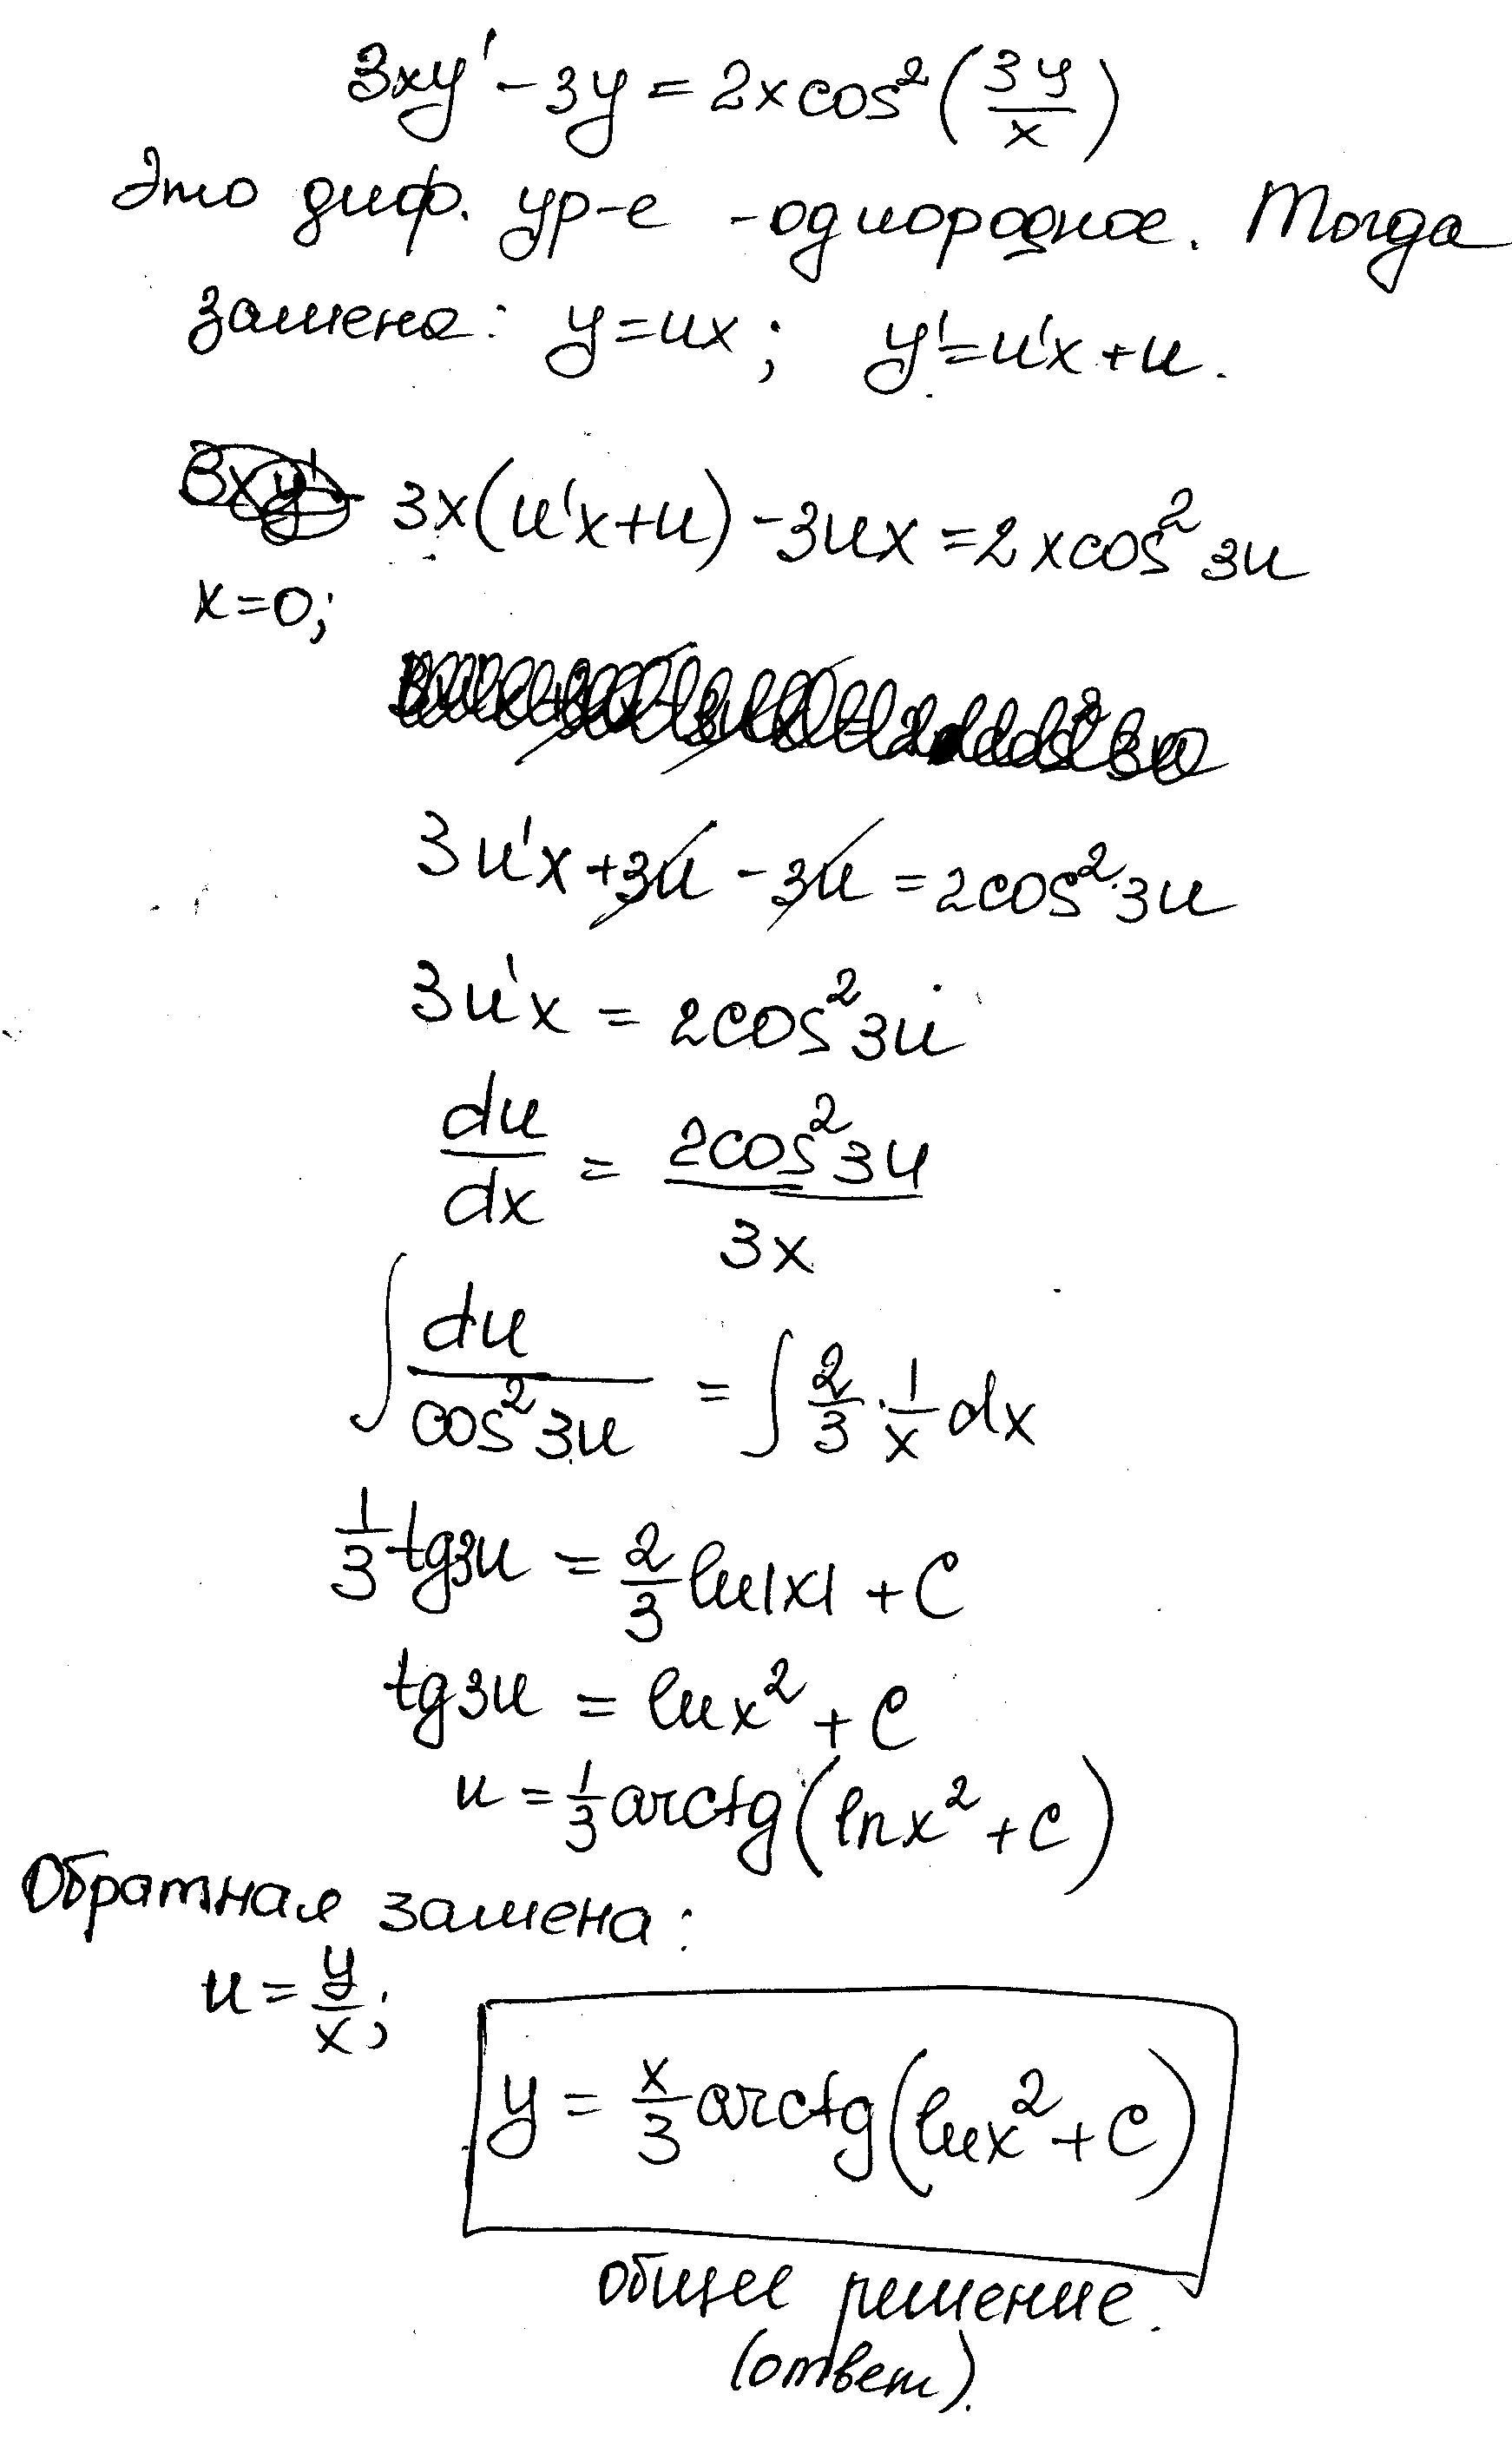 3xy' - 3y = 2x cos² (3y/x)
Это диф. ур-е - однородное. Тогда
замена: y = ux; y' = u'x + u.
3x(u'x + u) - 3ux = 2x cos² 3u
x = 0;
3u'x + 3u - 3u = 2cos² 3u
3u'x = 2cos² 3u
du/dx = 2cos² 3u / 3x
∫ du / cos² 3u = ∫ 2/3 · 1/x dx
1/3 tg3u = 2/3 ln|x| + C
tg3u = lnx² + C
u = 1/3 arctg(lnx² + C)
Обратная замена:
u = y/x;
y = x/3 arctg(lnx² + C)
общее решение.
(ответ).